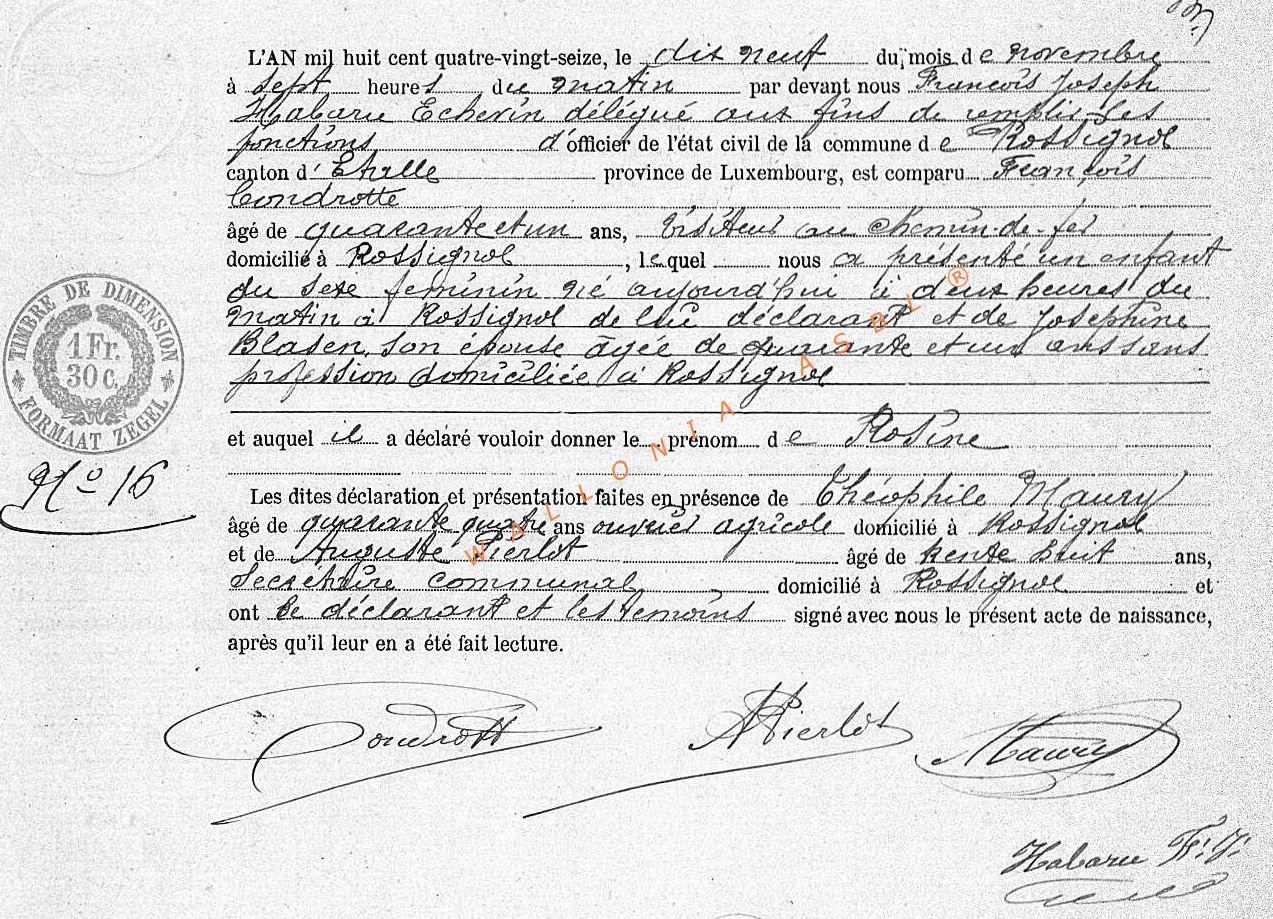 L'AN mil huit cent quatre-vingt-seize, le dix neuf du mois de novembre
à sept heures du matin par devant nous François Joseph
Habaru Echevin délégué aux fins de remplir les
fonctions d'officier de l'état civil de la commune de Rossignol
canton d'Etalle province de Luxembourg, est comparu François
Condrotte
âgé de quarante et un ans, visiteur au chemin-de-fer
domicilié à Rossignol, lequel nous a présenté un enfant
du sexe feminin né aujourd'hui à deux heures du
matin à Rossignol de lui déclarant et de Josephine
Blasen, son épouse âgée de quarante et un ans sans
profession domiciliée à Rossignol
et auquel il a déclaré vouloir donner le prénom de Rosine
Les dites déclaration et présentation faites en présence de Théophile Maury
âgé de quarante quatre ans ouvrier agricole domicilié à Rossignol
et de Auguste Pierlot âgé de trente huit ans,
Secretaire communal domicilié à Rossignol et
ont le déclarant et les temoins signé avec nous le présent acte de naissance,
après qu'il leur en a été fait lecture.
TIMBRE DE DIMENSION
1 Fr.
30 C.
FORMAAT ZEGEL
No 16
WALLONIA ASBL ®
Condrott
APierlot
Maury
Habaru Fr. J.